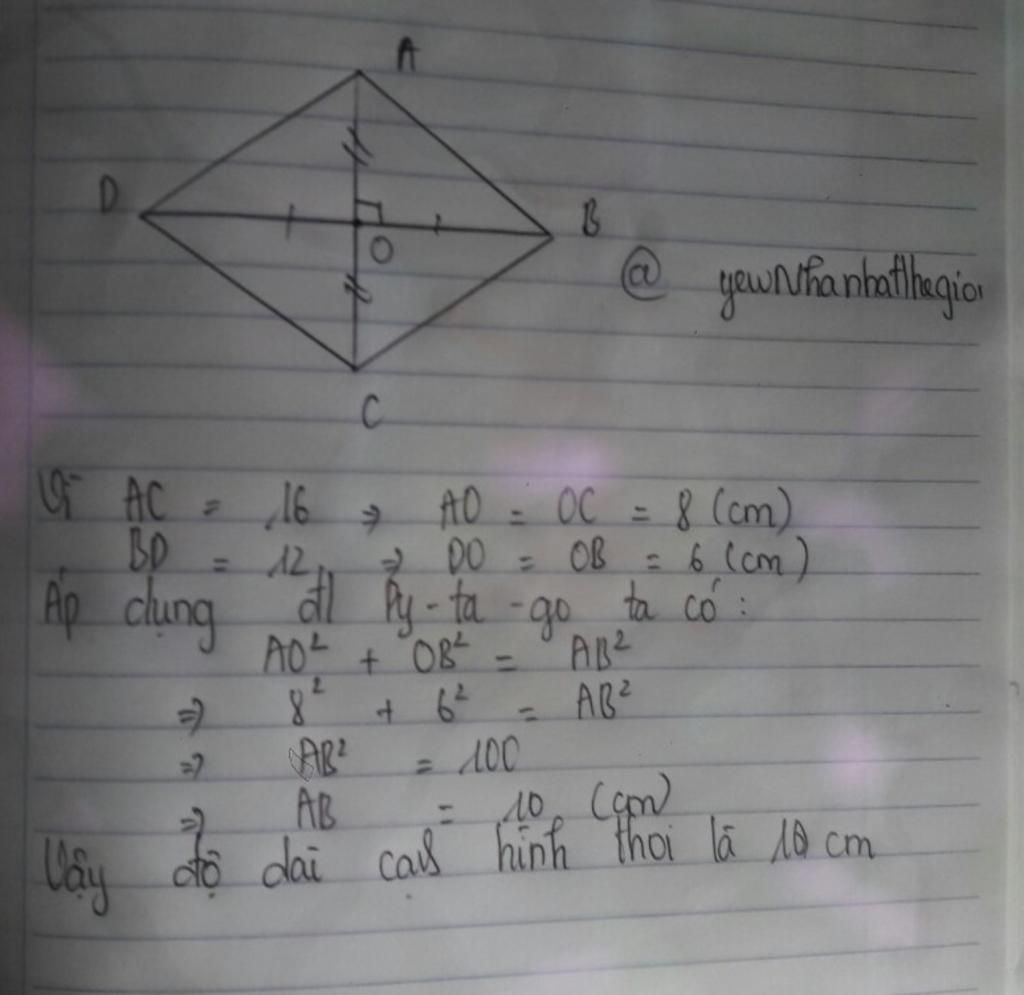 A
D
B
O
@ yewNhanhatthegioi
C
Vì AC = 16 => AO = OC = 8 (cm)
BD = 12 => DO = OB = 6 (cm)
Áp dụng đl Py-ta-go ta có:
AO² + OB² = AB²
=> 8² + 6² = AB²
=> AB² = 100
=> AB = 10 (cm)
Vậy độ dài hình thoi là 10 cm